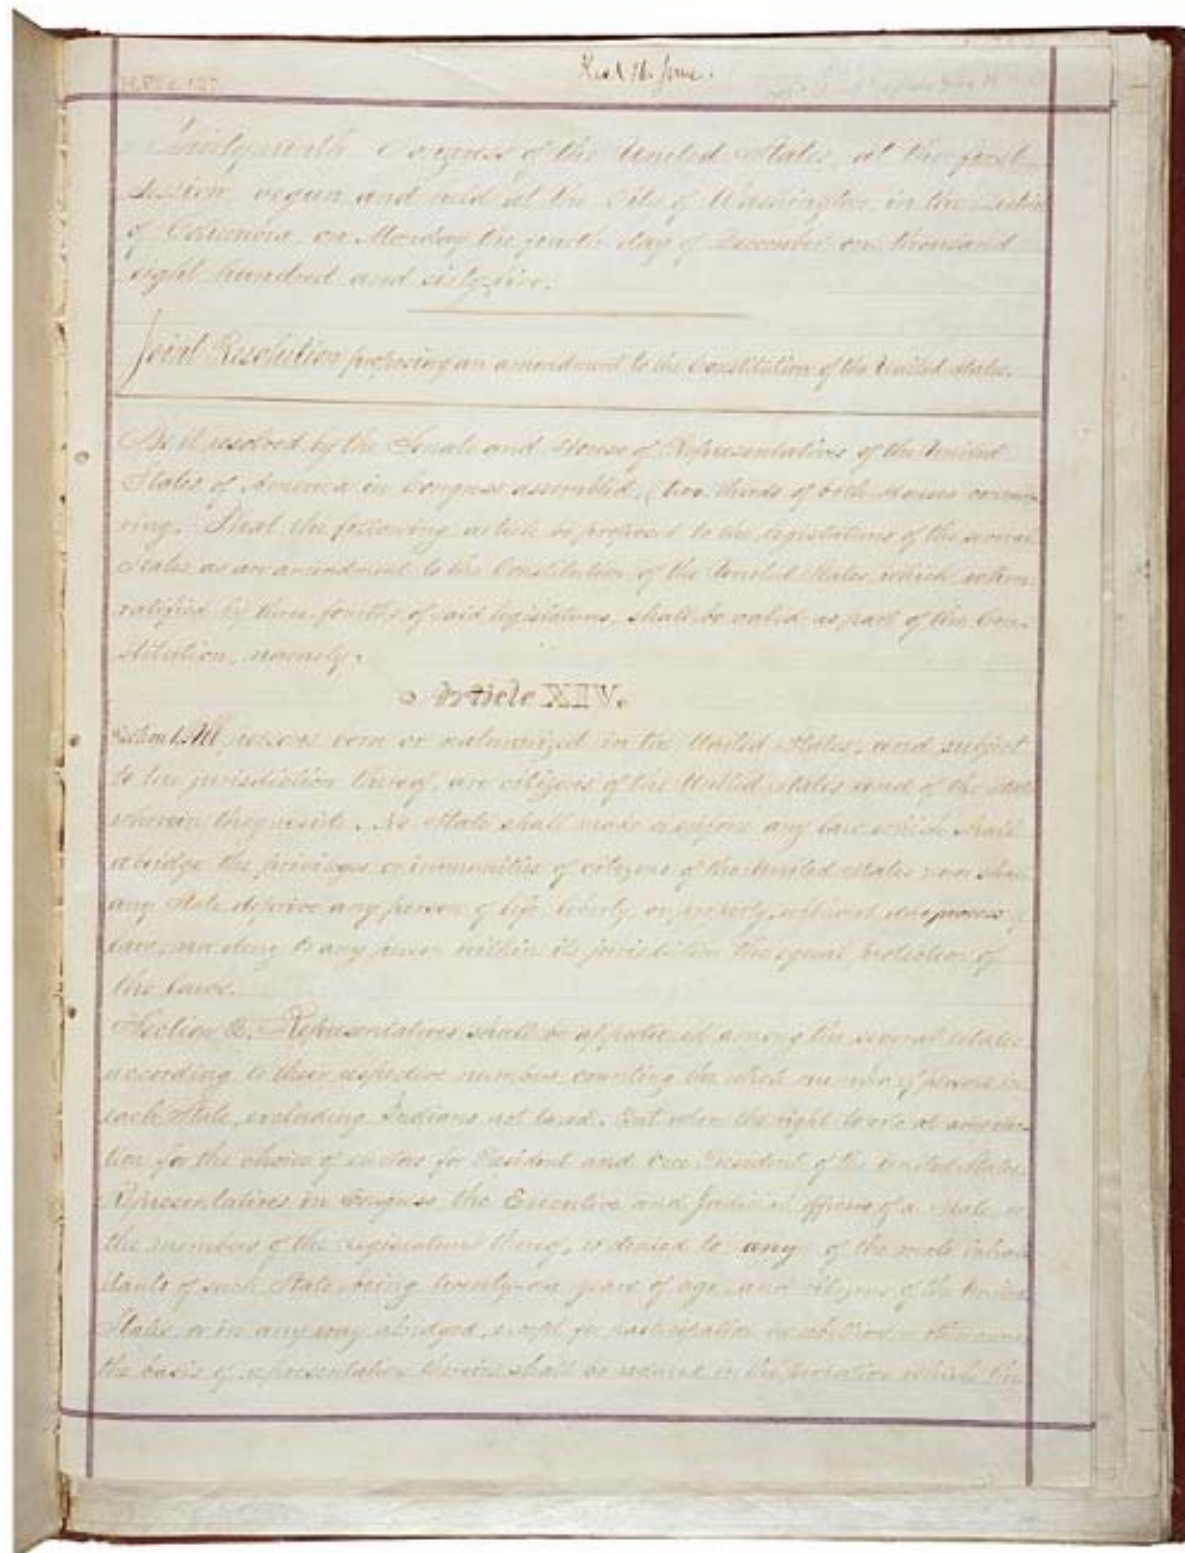 Thirty-ninth Congress of the United States, at the first
Session, begun and held at the City of Washington, in the District
of Columbia, on Monday the fourth day of December one thousand
eight hundred and sixty-five.
Joint Resolution proposing an amendment to the Constitution of the United States.
Be it resolved by the Senate and House of Representatives of the United
States of America in Congress assembled, (two thirds of both Houses concur-
ring,) That the following article be proposed to the legislatures of the several
States as an amendment to the Constitution of the United States, which, when
ratified by three fourths of said legislatures, shall be valid as part of the Con-
stitution, namely:
Article XIV.
Section 1. All persons born or naturalized in the United States, and subject
to the jurisdiction thereof, are citizens of the United States and of the State
wherein they reside. No State shall make or enforce any law which shall
abridge the privileges or immunities of citizens of the United States; nor shall
any State deprive any person of life, liberty, or property, without due process of
law, nor deny to any person within its jurisdiction the equal protection of
the laws.
Section 2. Representatives shall be apportioned among the several States
according to their respective numbers, counting the whole number of persons in
each State, excluding Indians not taxed. But when the right to vote at any elec-
tion for the choice of electors for President and Vice President of the United States,
Representatives in Congress, the Executive and Judicial officers of a State, or
the members of the Legislature thereof, is denied to any of the male inhabi-
tants of such State, being twenty-one years of age, and citizens of the United
States, or in any way abridged, except for participation in rebellion or other crime,
the basis of representation therein shall be reduced in the proportion which the